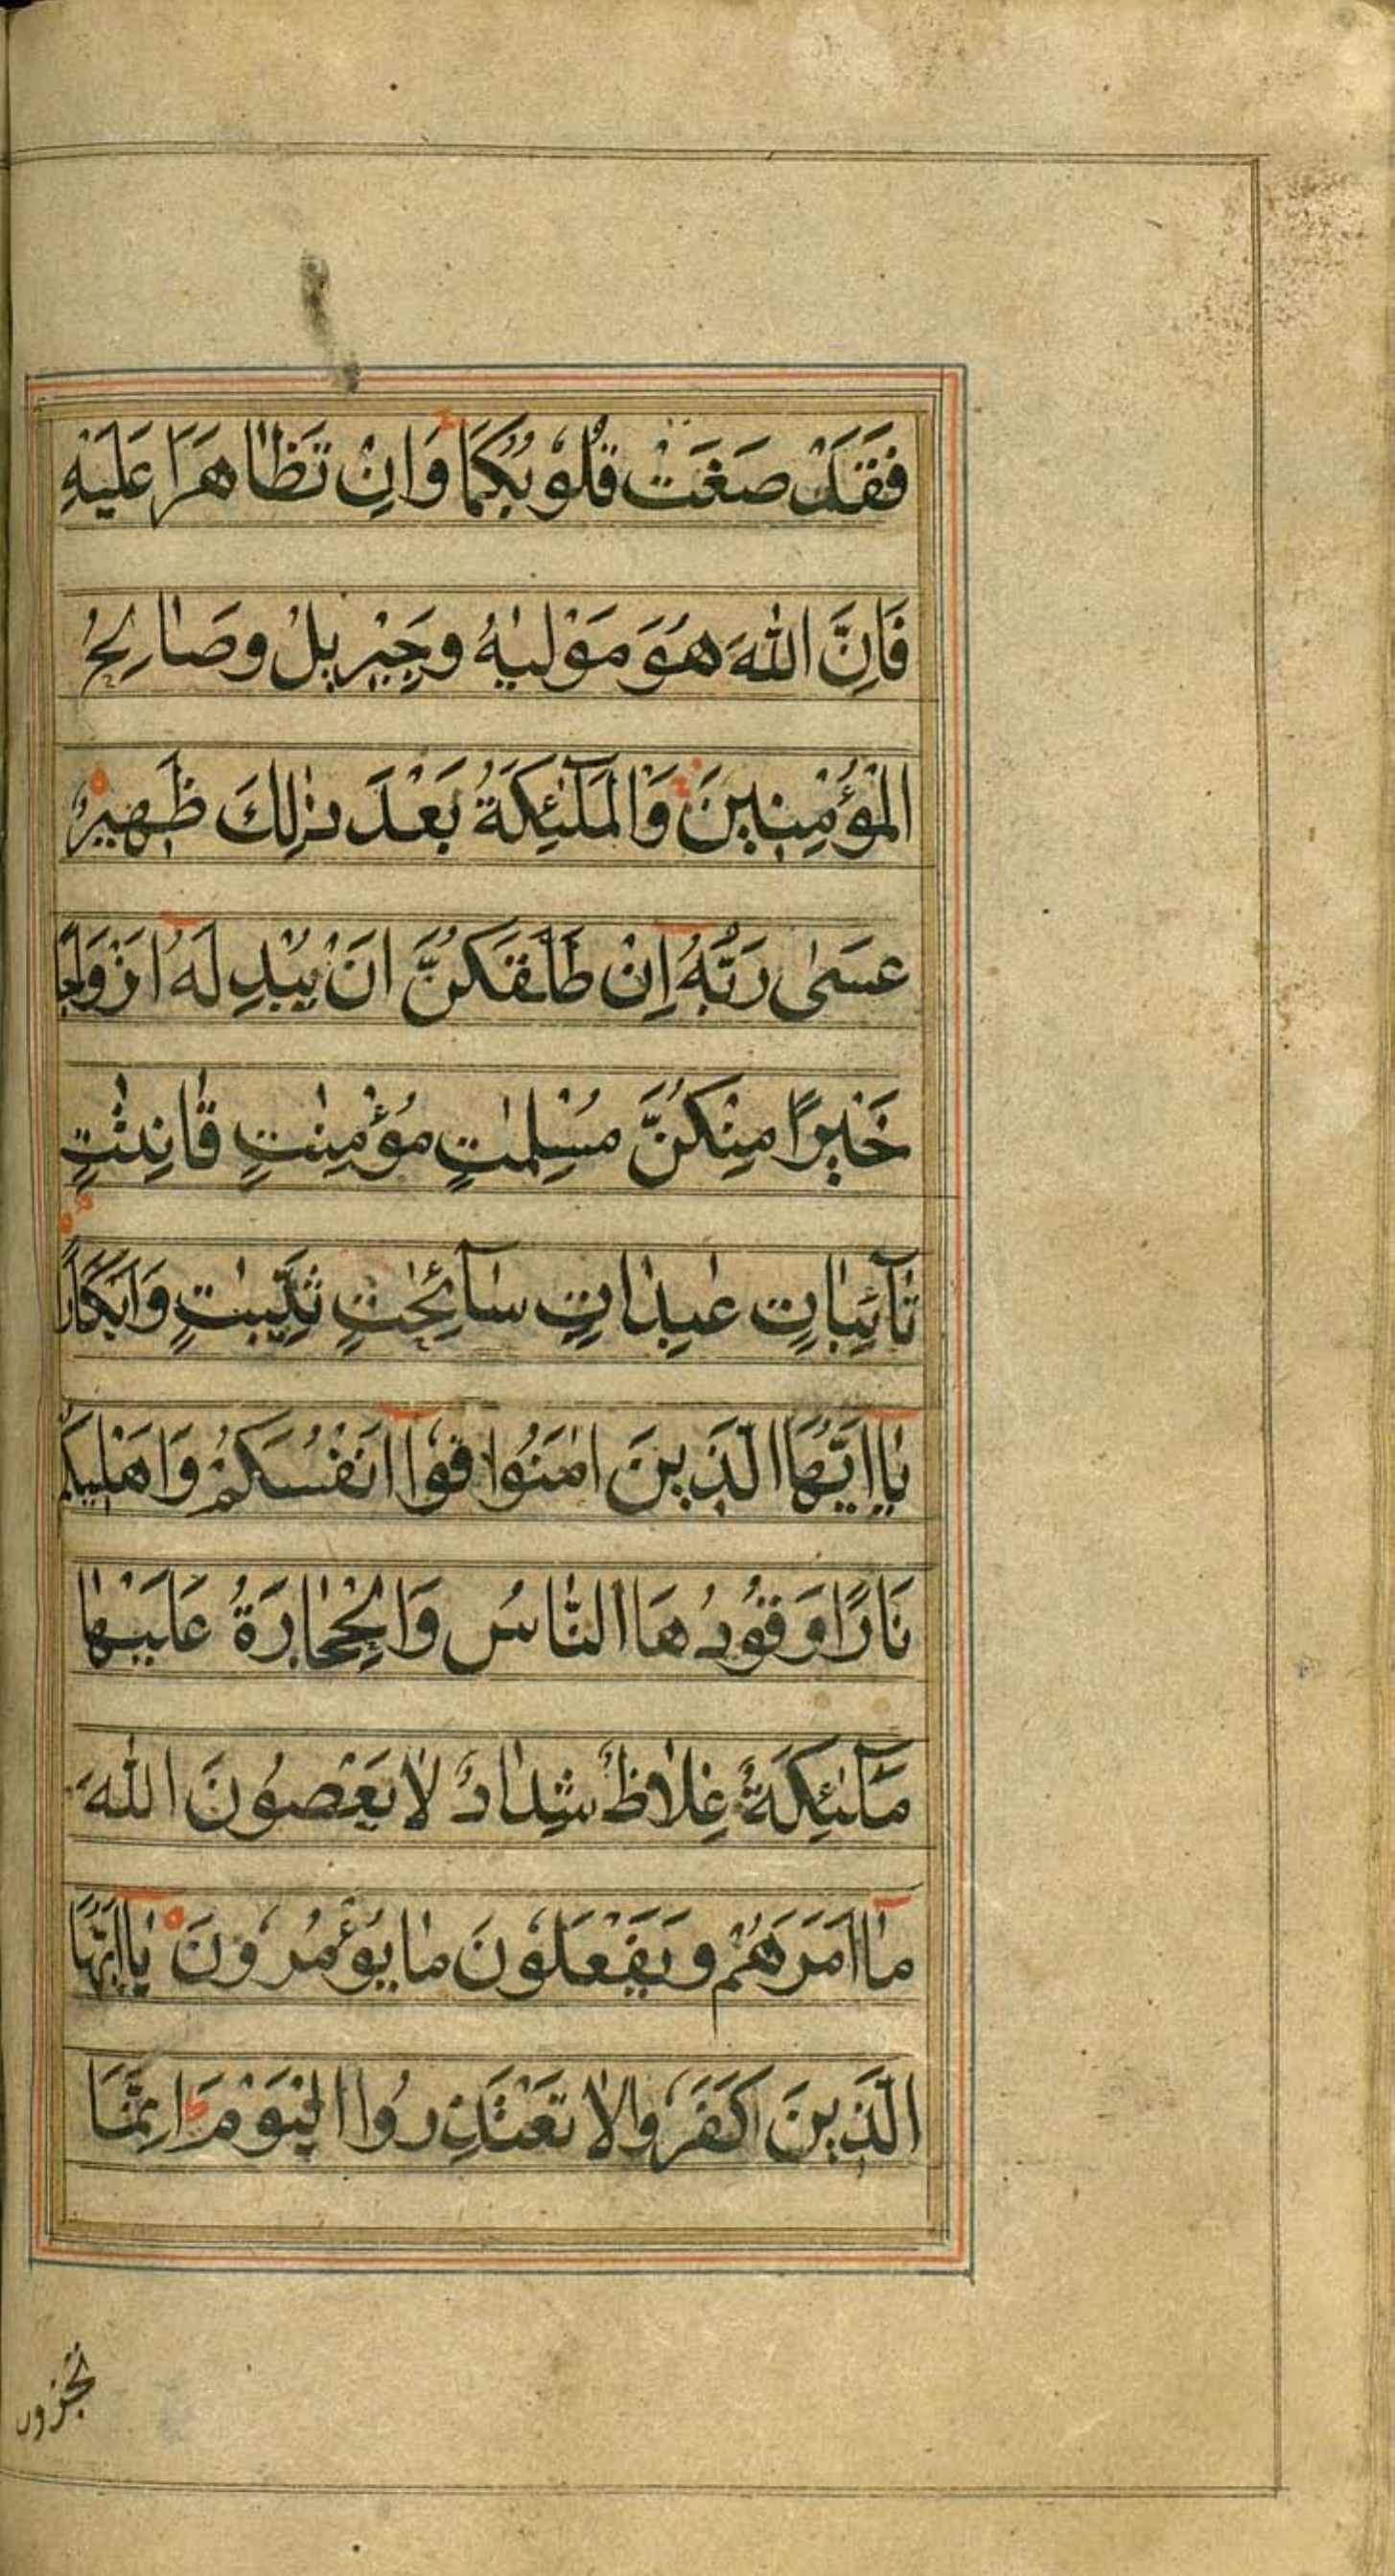 فَقَدْ صَغَتْ قُلُوْبُكُمَا وَاِنْ تَظَاهَرَا عَلَيْهِ
فَاِنَّ اللّٰهَ هُوَ مَوْلٰیهُ وجِبْرِیلُ وصَالِحُ
الْمُؤْمِنِینَ وَالْمَلٰٓئِكَةُ بَعْدَ ذٰلِكَ ظَهِیْرٌ
عَسٰی رَبُّهُ اِنْ طَلَّقَكُنَّ اَنْ یُبْدِلَهُ اَزْوَاجًا
خَیْرًا مِنْكُنَّ مُسْلِمٰتٍ مُؤْمِنٰتٍ قَانِتٰتٍ
تَآئِبَاتٍ عٰبِدَاتٍ سَآئِحٰتٍ ثَیِّبٰتٍ وَاَبْكَارًا
یَااَیُّهَا الَّذِینَ اٰمَنُوا قُوا اَنْفُسَكُمْ وَاَهْلِیكُمْ
نَارًا وَقُوْدُهَا النَّاسُ وَالْحِجَارَةُ عَلَیْهَا
مَلٰٓئِكَةٌ غِلَاظٌ شِدَادٌ لَا یَعْصُونَ اللّٰهَ
مَا اَمَرَهُمْ وَیَفْعَلُونَ مَا یُؤْمُرُونَ یَااَیُّهَا
الَّذِینَ كَفَرُوا لَا تَعْتَذِرُوا الْیَوْمَ اِنَّمَا
تجزون